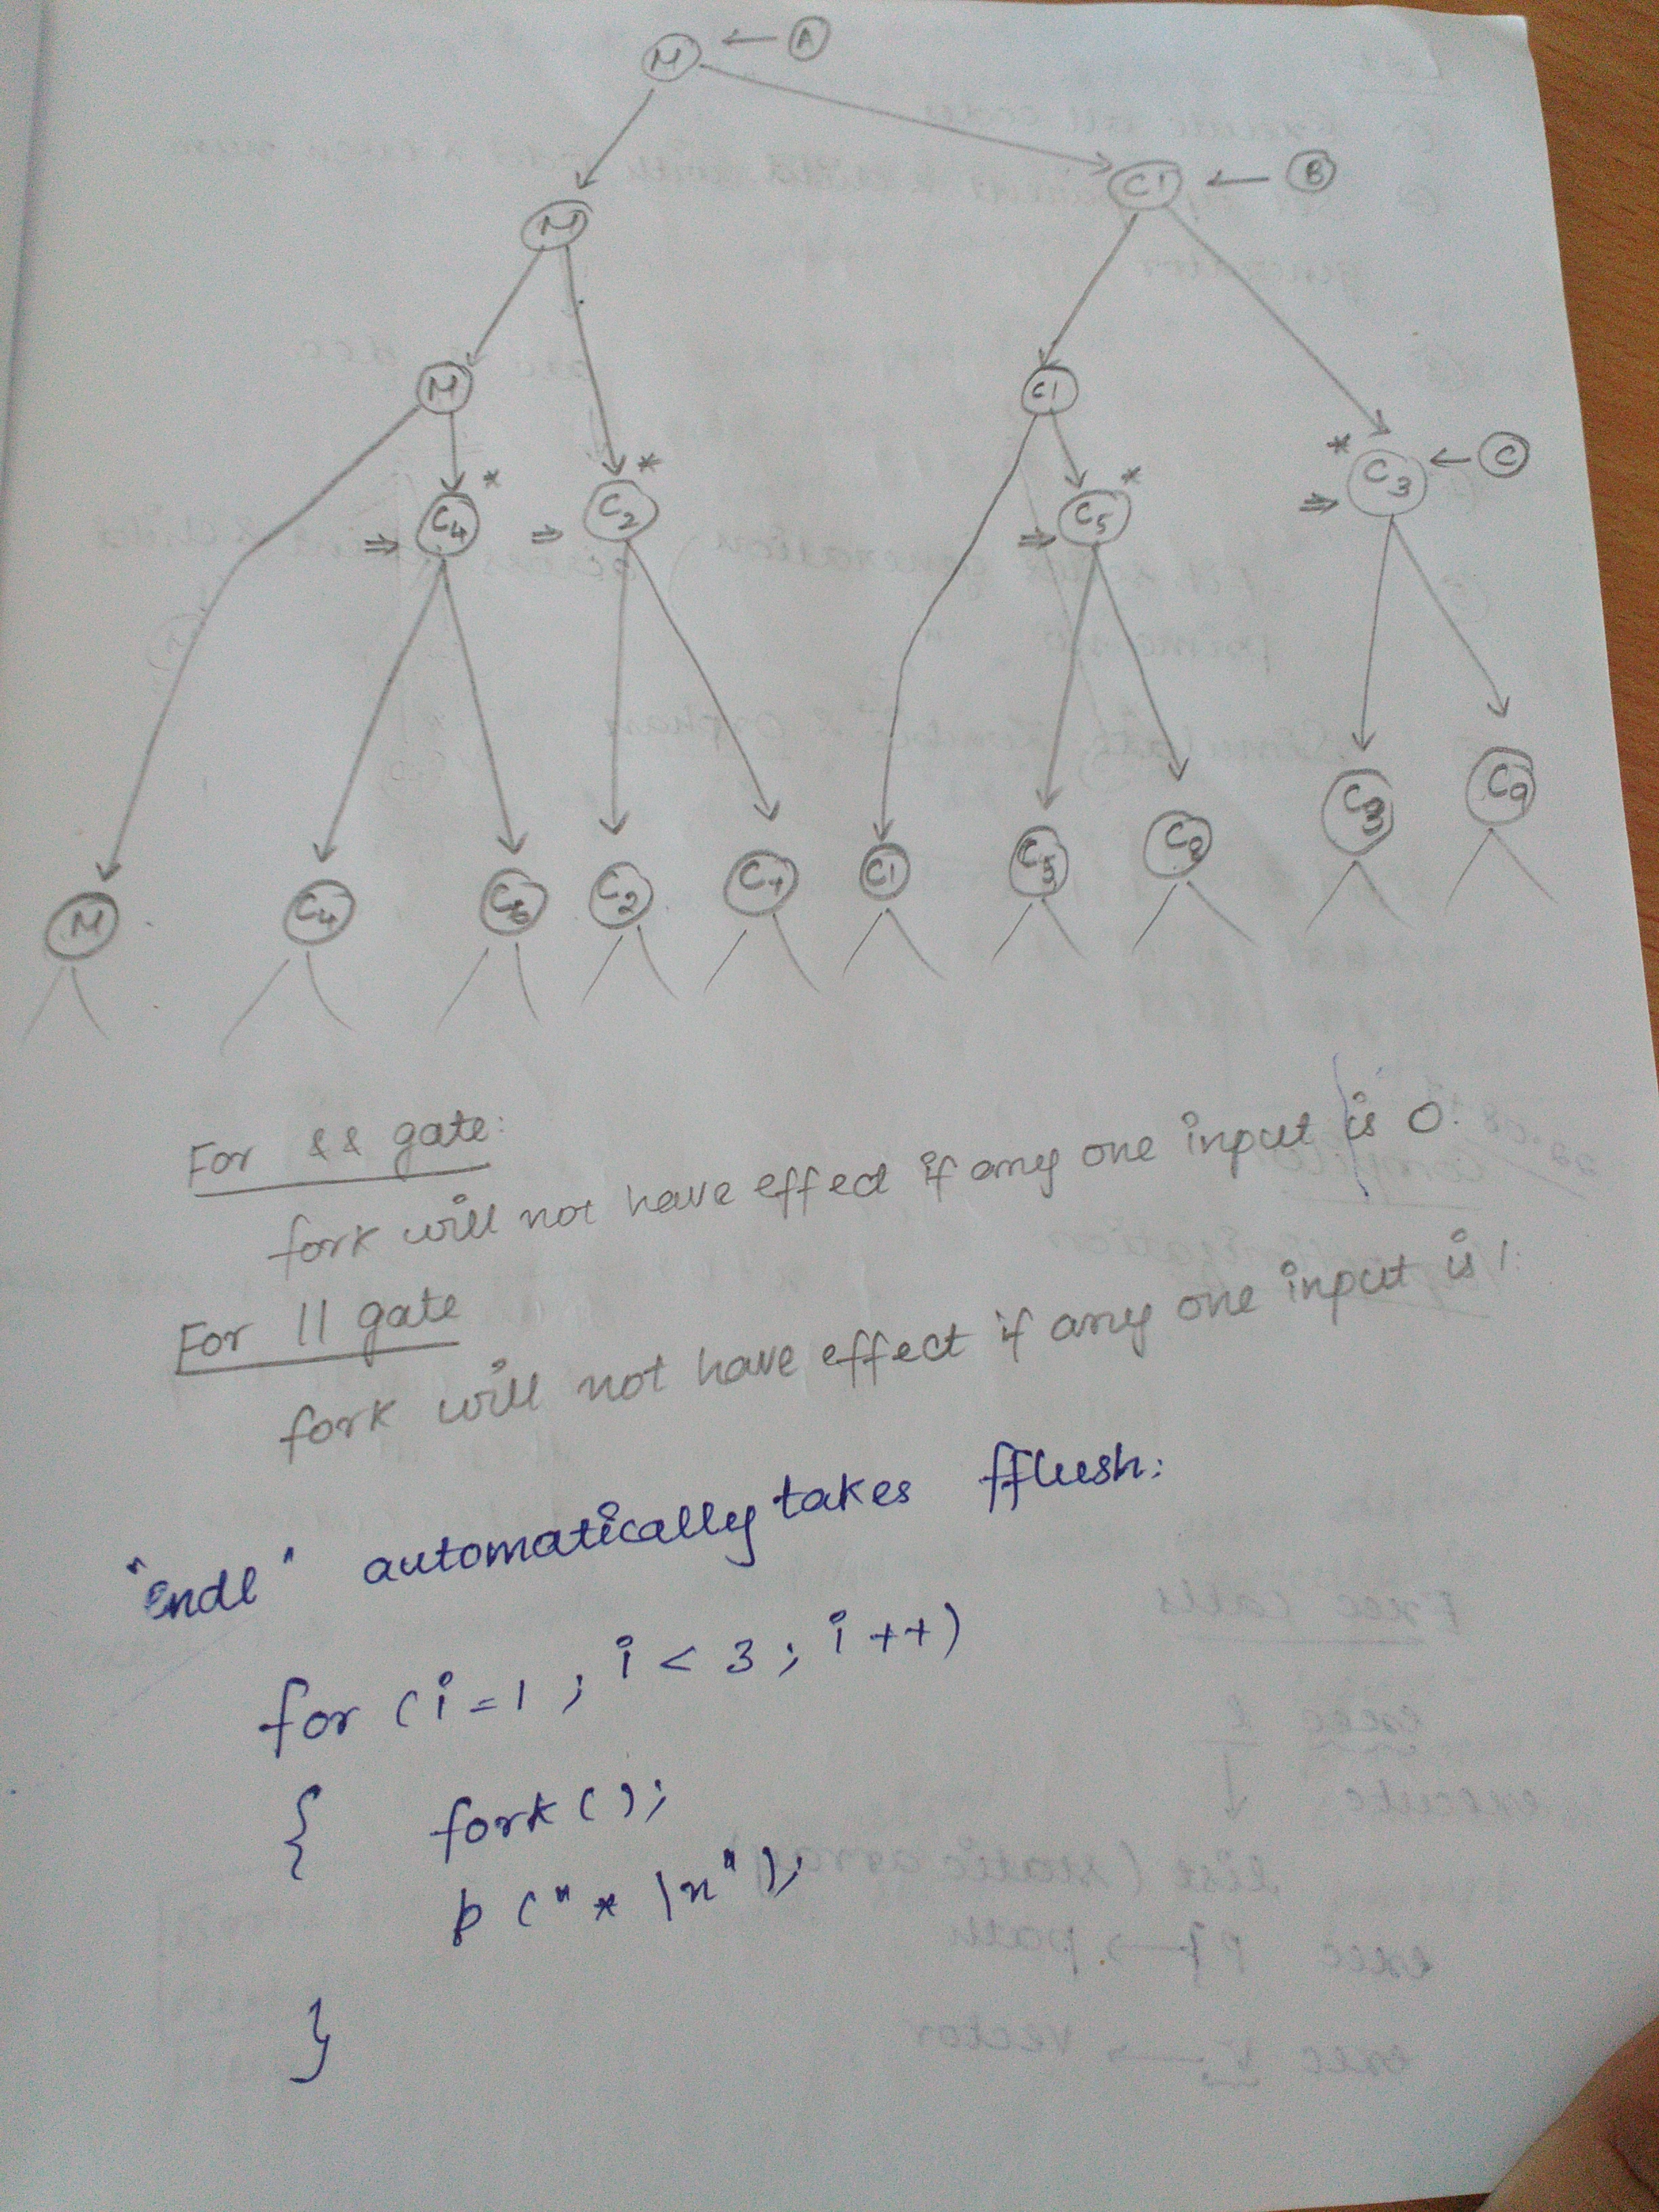 M ← A
M C1 ← B
M C1
* C4 * C2 * C5 * C3 ← C
⇒ ⇒ ⇒ ⇒
M C4 C6 C2 C7 C1 C5 C8 C3 C9
For && gate:
fork will not have effect if any one input is 0.
For || gate
fork will not have effect if any one input is 1.
"endl" automatically takes fflush:
for (i=1 ; i < 3 ; i ++)
{ fork ( );
p ("* \n");
}